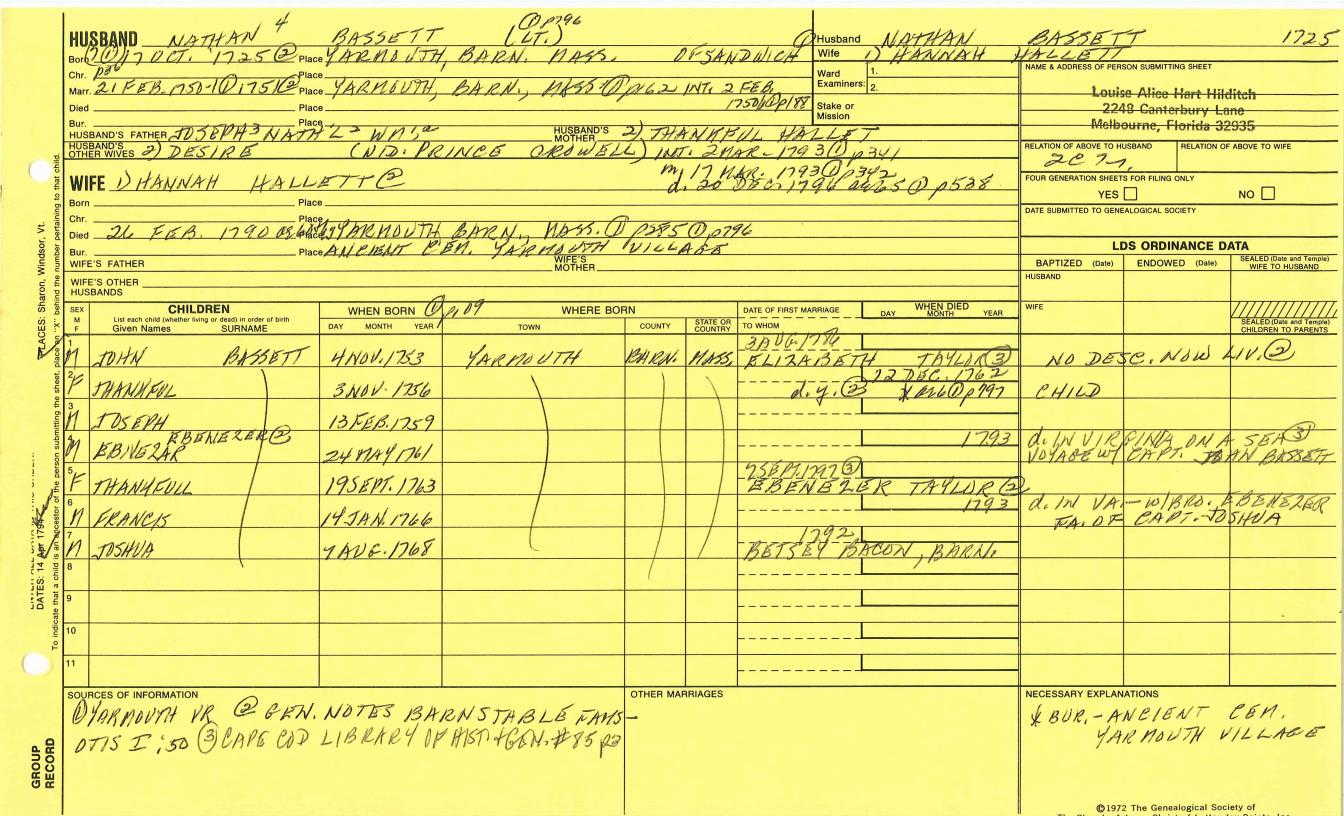 HUSBAND NATHAN 4 BASSETT (LT.) ① p796
Born ① 17 OCT. 1725 ② Place YARMOUTH, BARN. MASS. OF SANDWICH ①
Chr. p36 Place
Marr. 21 FEB. 1750-1 ① 1751 ② Place YARMOUTH, BARN., MASS. ① p162 INT. 2 FEB.
1750/1 ① p188
Died Place
Bur. Place
HUSBAND'S FATHER JOSEPH³ NATH'L² WM'¹ HUSBAND'S MOTHER 2) THANKFUL HALLET
HUSBAND'S OTHER WIVES 2) DESIRE (WID. PRINCE CROWELL) INT. 2 MAR-1793 ① p341
m 17 MAR. 1793 ① p342
WIFE 1) HANNAH HALLETT ② d. 20 DEC. 1794 ae 65 ① p538
Born Place
Chr. Place
Died 26 FEB. 1790 Place YARMOUTH BARN., MASS. ① p285 ① p796
Bur. Place ANCIENT CEM. YARMOUTH VILLAGE
WIFE'S FATHER WIFE'S MOTHER
WIFE'S OTHER HUSBANDS
Husband NATHAN BASSETT 1725
Wife 1) HANNAH HALLETT
Ward Examiners: 1.
2.
Stake or Mission
NAME & ADDRESS OF PERSON SUBMITTING SHEET
Louise Alice Hart Hilditch
2248 Canterbury Lane
Melbourne, Florida 32935
RELATION OF ABOVE TO HUSBAND RELATION OF ABOVE TO WIFE
2C 7r.
FOUR GENERATION SHEETS FOR FILING ONLY
YES NO
DATE SUBMITTED TO GENEALOGICAL SOCIETY
LDS ORDINANCE DATA
BAPTIZED (Date) ENDOWED (Date) SEALED (Date and Temple) WIFE TO HUSBAND
HUSBAND
WIFE
SEALED (Date and Temple) CHILDREN TO PARENTS
SEX M F
CHILDREN
List each child (whether living or dead) in order of birth
Given Names SURNAME
WHEN BORN ① p109
DAY MONTH YEAR
WHERE BORN
TOWN COUNTY STATE OR COUNTRY
DATE OF FIRST MARRIAGE
TO WHOM
WHEN DIED
DAY MONTH YEAR
3 AUG. 1786
1 M JOHN BASSETT 4 NOV. 1753 YARMOUTH BARN. MASS. ELIZABETH TAYLOR ③ NO DESC. NOW LIV. ②
22 DEC. 1762
2 F THANKFUL 3 NOV. 1756 d.y. ② * ae 6 ① p797 CHILD
3 M JOSEPH 13 FEB. 1759
EBENEZER ② 1793 d. IN VIRGINIA ON A SEA ③
4 M EBINEZAR 24 MAY 1761 VOYAGE W/ CAPT. JOAN BASSETT
7 SEPT. 1797 ③
5 F THANKFULL 19 SEPT. 1763 EBENEZER TAYLOR ②
1793 d. IN VA. - W/BRO. EBENEZER
6 M FRANCIS 14 JAN. 1766 FA. OF CAPT. JOSHUA
1792
7 M JOSHUA 7 AUG. 1768 BETSEY BACON, BARN.
8
9
10
11
SOURCES OF INFORMATION
① YARMOUTH VR ② GEN. NOTES BARNSTABLE FAMS-
OTIS I:50 ③ CAPE COD LIBRARY OF HIST + GEN. #85 p2
OTHER MARRIAGES
NECESSARY EXPLANATIONS
* BUR. - ANCIENT CEM.
YARMOUTH VILLAGE
©1972 The Genealogical Society of
GROUP RECORD
To indicate that a child is an ancestor of the person submitting the sheet, place an "X" behind the number pertaining to that child.
PLACES: Sharon, Windsor, Vt.
DATES: 14 Apr 1794